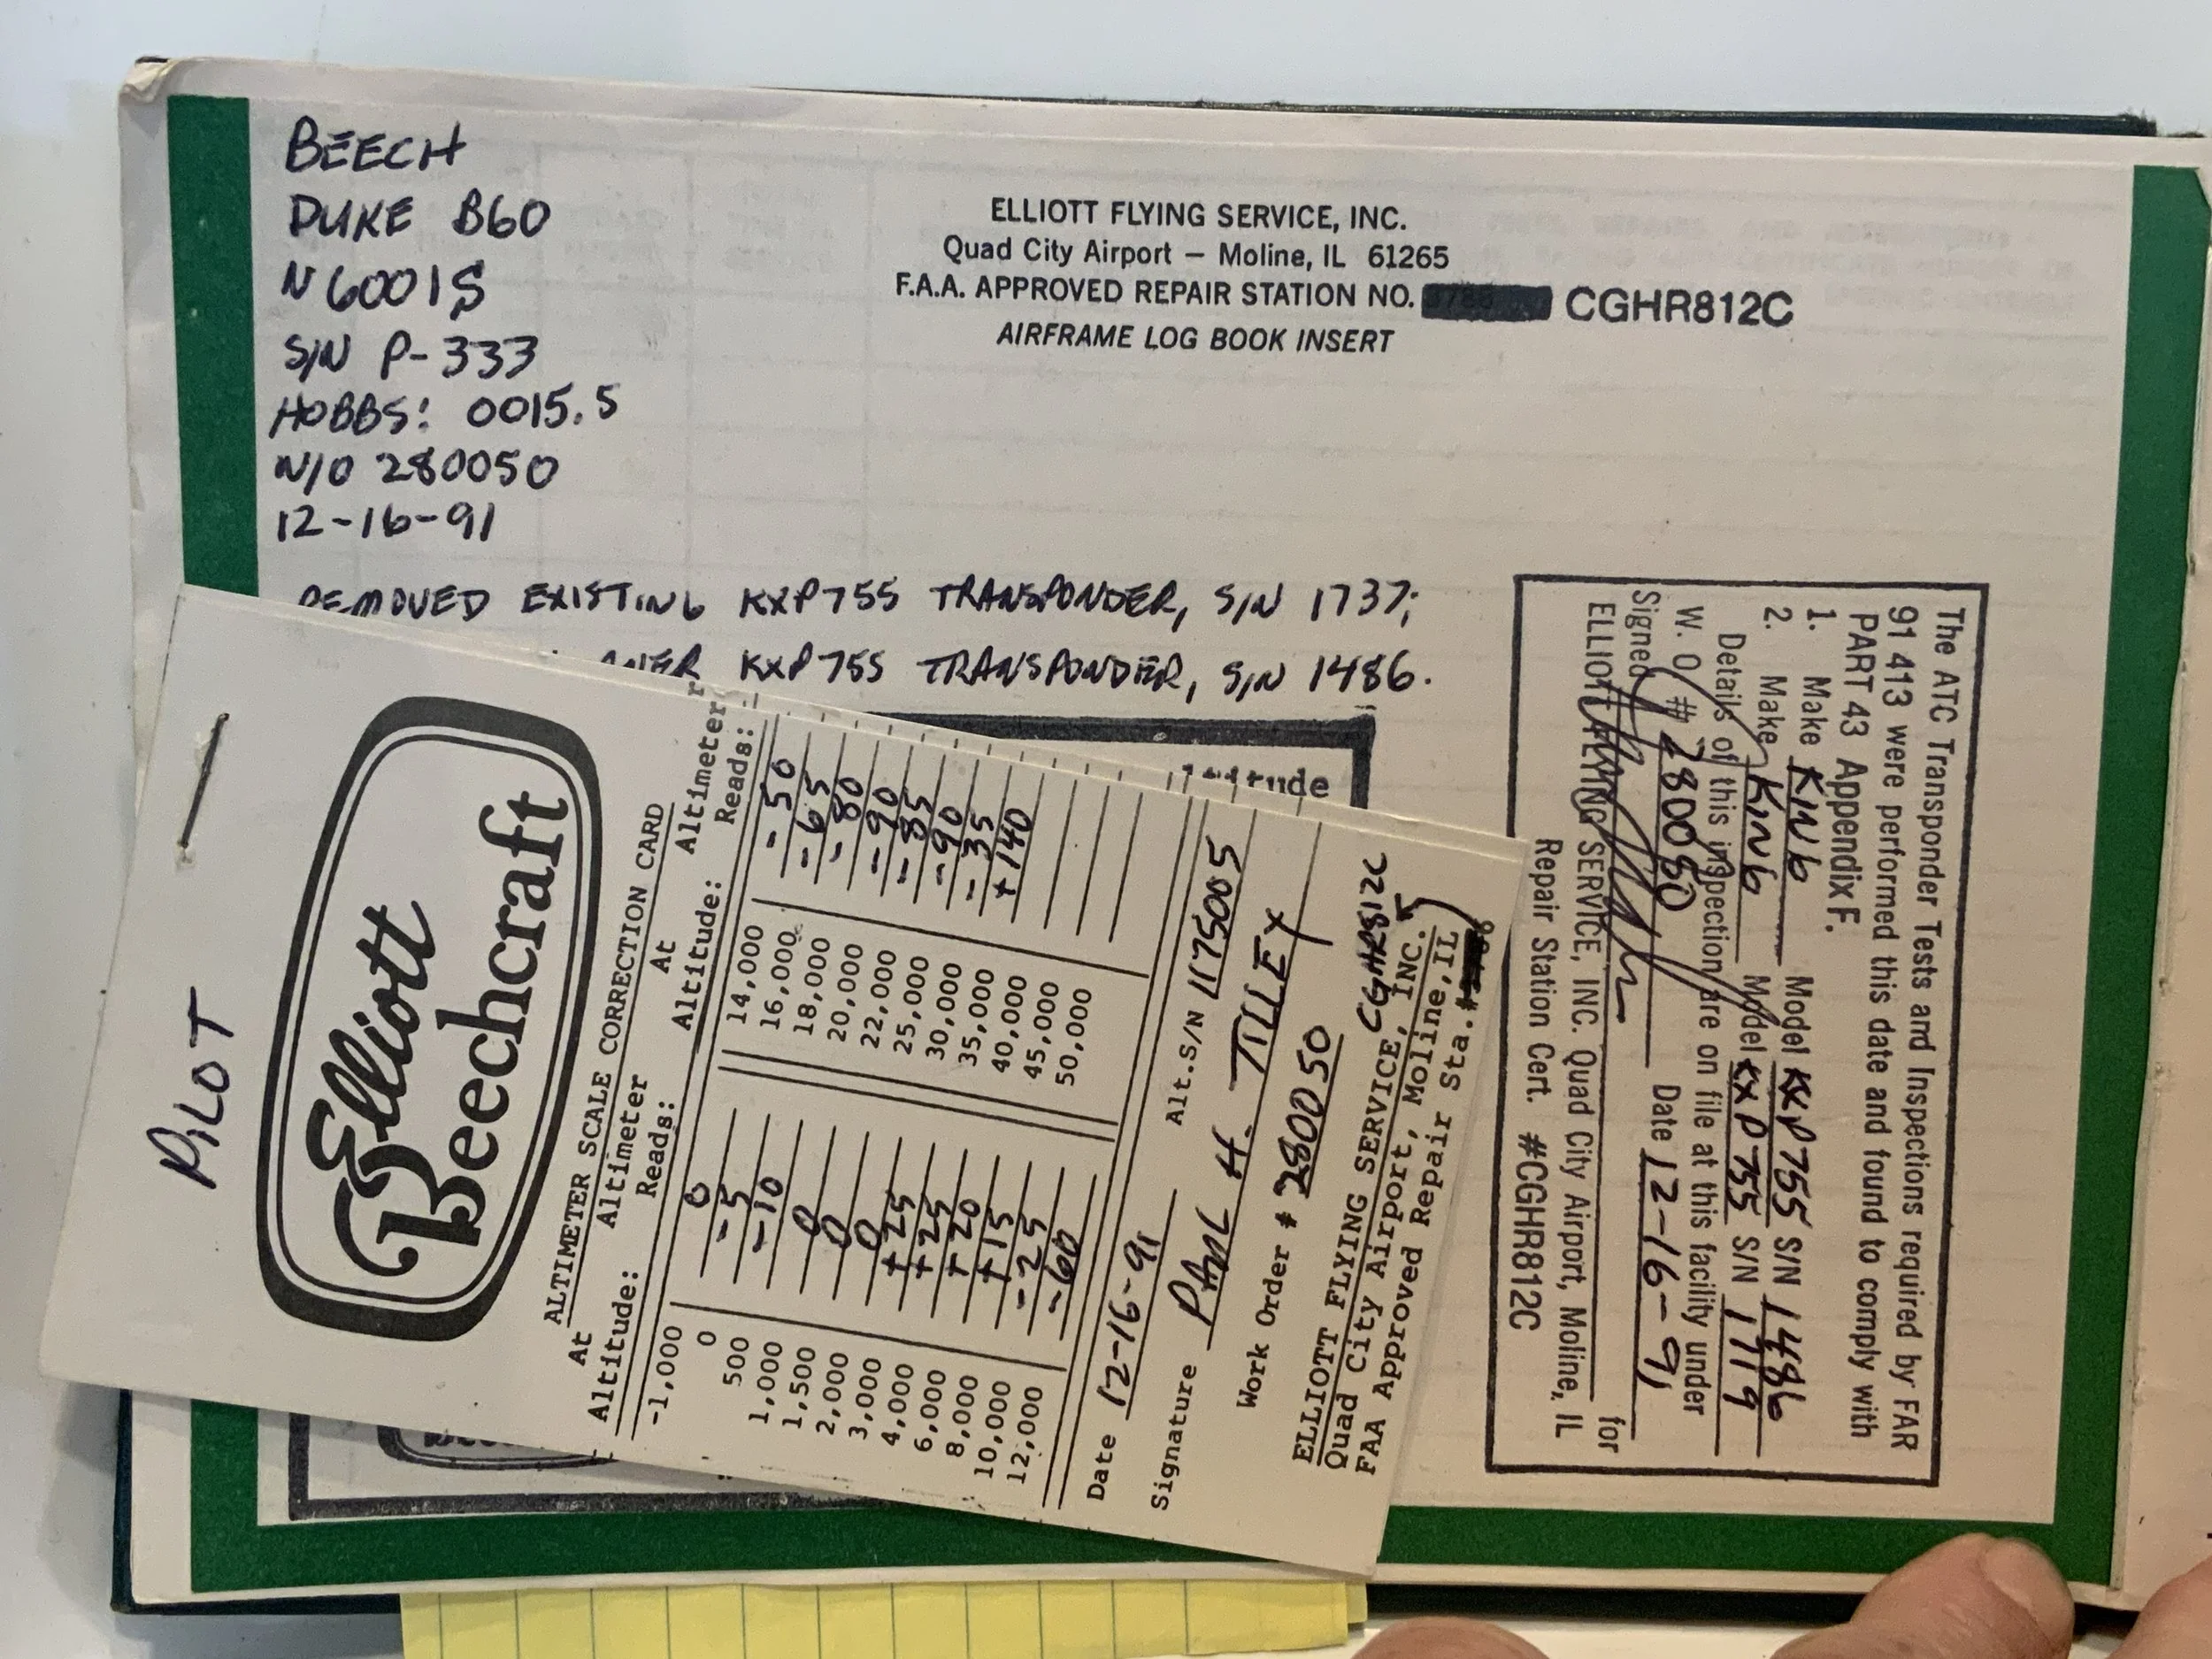 BEECH
DUKE B60
N6001S
S/N P-333
HOBBS: 0015.5
W/O 280050
12-16-91
ELLIOTT FLYING SERVICE, INC.
Quad City Airport — Moline, IL 61265
F.A.A. APPROVED REPAIR STATION NO. CGHR812C
AIRFRAME LOG BOOK INSERT
REMOVED EXISTING KXP755 TRANSPONDER, S/N 1737;
KXP755 TRANSPONDER, S/N 1486.
The ATC Transponder Tests and Inspections required by FAR
91 413 were performed this date and found to comply with
PART 43 Appendix F.
1. Make KING Model KXP755 S/N 1486
2. Make KING Model KXP755 S/N 1719
Details of this inspection are on file at this facility under
W. O. # 280050 Date 12-16-91
Signed for
ELLIOTT FLYING SERVICE, INC. Quad City Airport, Moline, IL
Repair Station Cert. #CGHR812C
PILOT
Elliott
Beechcraft
ALTIMETER SCALE CORRECTION CARD
At Altimeter At Altimeter
Altitude: Reads: Altitude: Reads:
-1,000 0 14,000 -50
0 -5 16,000 -65
500 -10 18,000 -80
1,000 0 20,000 -90
1,500 0 22,000 -85
2,000 0 25,000 -90
3,000 +25 30,000 -35
4,000 +25 35,000 +140
6,000 +20 40,000
8,000 +15 45,000
10,000 -25 50,000
12,000 -60
Date 12-16-91 Alt.S/N 1175005
Signature PAUL H. TILLEY
Work Order # 280050
ELLIOTT FLYING SERVICE, INC.
Quad City Airport, Moline, IL
FAA Approved Repair Sta.# CGHR812C